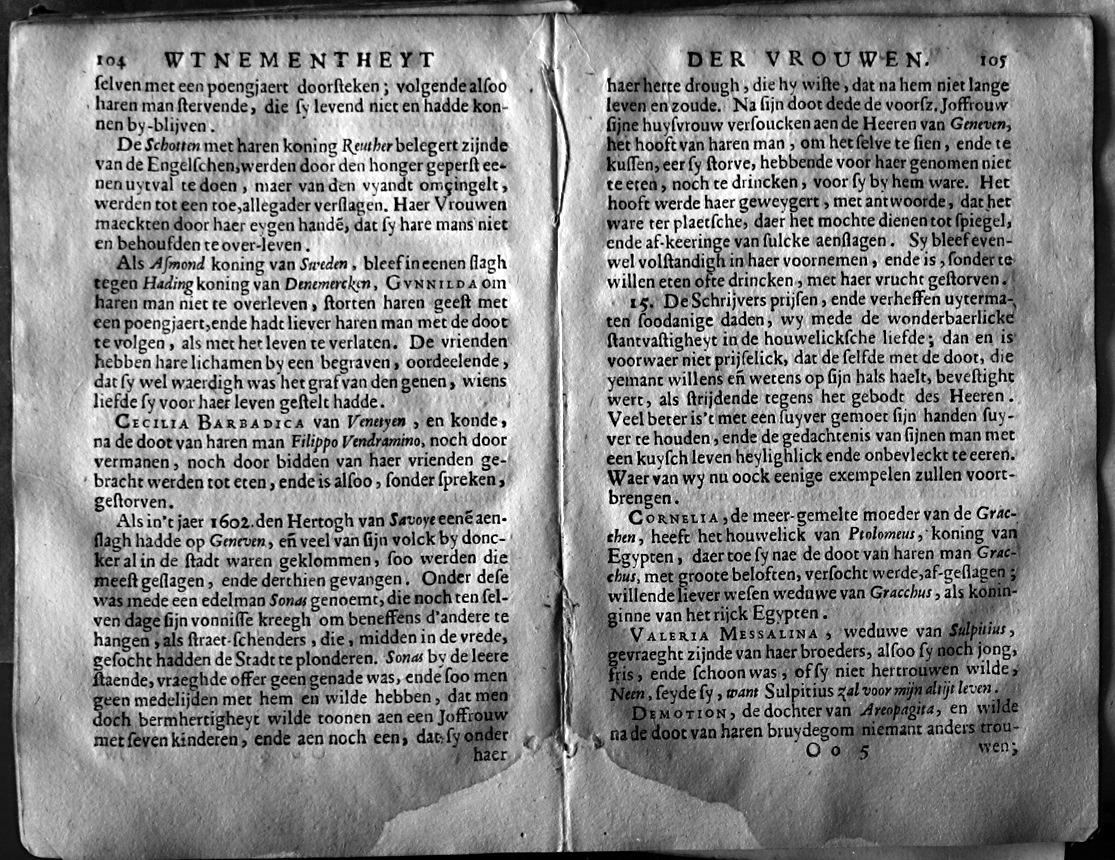 104 WTNEMENTHEYT
ſelven met een poengjaert doorſteken; volgende alſoo
haren man ſtervende, die ſy levend niet en hadde kon-
nen by-blijven.
De Schotten met haren koning Reuther belegert zijnde
van de Engelſchen, werden door den honger geperſt ee-
nen uytval te doen, maer van den vyandt omçingelt,
werden tot een toe, allegader verſlagen. Haer Vrouwen
maeckten door haer eygen handē, dat ſy hare mans niet
en behoufden te over-leven.
Als Aſmond koning van Sweden, bleef in eenen ſlagh
tegen Hading koning van Denemercken, GVNNILDA om
haren man niet te overleven, ſtorten haren geeſt met
een poengjaert, ende hadt liever haren man met de doot
te volgen, als met het leven te verlaten. De vrienden
hebben hare lichamen by een begraven, oordeelende,
dat ſy wel waerdigh was het graf van den genen, wiens
liefde ſy voor haer leven geſtelt hadde.
CECILIA BARBADICA van Venetyen, en konde,
na de doot van haren man Filippo Vendramino, noch door
vermanen, noch door bidden van haer vrienden ge-
bracht werden tot eten, ende is alſoo, ſonder ſpreken,
geſtorven.
Als in't jaer 1602. den Hertogh van Savoye eenē aen-
ſlagh hadde op Geneven, en̄ veel van ſijn volck by donc-
ker al in de ſtadt waren geklommen, ſoo werden die
meeſt geſlagen, ende derthien gevangen. Onder deſe
was mede een edelman Sonas genoemt, die noch ten ſel-
ven dage ſijn vonniſſe kreegh om beneffens d'andere te
hangen, als ſtraet-ſchenders, die, midden in de vrede,
geſocht hadden de Stadt te plonderen. Sonas by de leere
ſtaende, vraeghde offer geen genade was, ende ſoo men
geen medelijden met hem en wilde hebben, dat men
doch bermhertigheyt wilde toonen aen een Joffrouw
met ſeven kinderen, ende aen noch een, dat ſy onder
haer
DER VROUWEN. 105
haer herte drough, die hy wiſte, dat na hem niet lange
leven en zoude. Na ſijn doot dede de voorſz. Joffrouw
ſijne huyſvrouw verſoucken aen de Heeren van Geneven,
het hooft van haren man, om het ſelve te ſien, ende te
kuſſen, eer ſy ſtorve, hebbende voor haer genomen niet
te eten, noch te drincken, voor ſy by hem ware. Het
hooft werde haer geweygert, met antwoorde, dat het
ware ter plaetſche, daer het mochte dienen tot ſpiegel,
ende af-keeringe van ſulcke aenſlagen. Sy bleef even-
wel volſtandigh in haer voornemen, ende is, ſonder te
willen eten ofte drincken, met haer vrucht geſtorven.
15. De Schrijvers prijſen, ende verheffen uyterma-
ten ſoodanige daden, wy mede de wonderbaerlicke
ſtantvaſtigheyt in de houwelickſche liefde; dan en is
voorwaer niet prijſelick, dat de ſelfde met de doot, die
yemant willens en̄ wetens op ſijn hals haelt, beveſtight
wert, als ſtrijdende tegens het gebodt des Heeren.
Veel beter is't met een ſuyver gemoet ſijn handen ſuy-
ver te houden, ende de gedachtenis van ſijnen man met
een kuyſch leven heylighlick ende onbevleckt te eeren.
Waer van wy nu oock eenige exempelen zullen voort-
brengen.
CORNELIA, de meer-gemelte moeder van de Grac-
chen, heeft het houwelick van Ptolomeus, koning van
Egypten, daer toe ſy nae de doot van haren man Grac-
chus, met groote beloften, verſocht werde, af-geſlagen;
willende liever weſen weduwe van Gracchus, als konin-
ginne van het rijck Egypten.
VALERIA MESSALINA, weduwe van Sulpitius,
gevraeght zijnde van haer broeders, alſoo ſy noch jong,
fris, ende ſchoon was, of ſy niet hertrouwen wilde,
Neen, ſeyde ſy, want Sulpitius zal voor mijn altijt leven.
DEMOTION, de dochter van Areopagita, en wilde
na de doot van haren bruydegom niemant anders trou-
O o 5 wen;